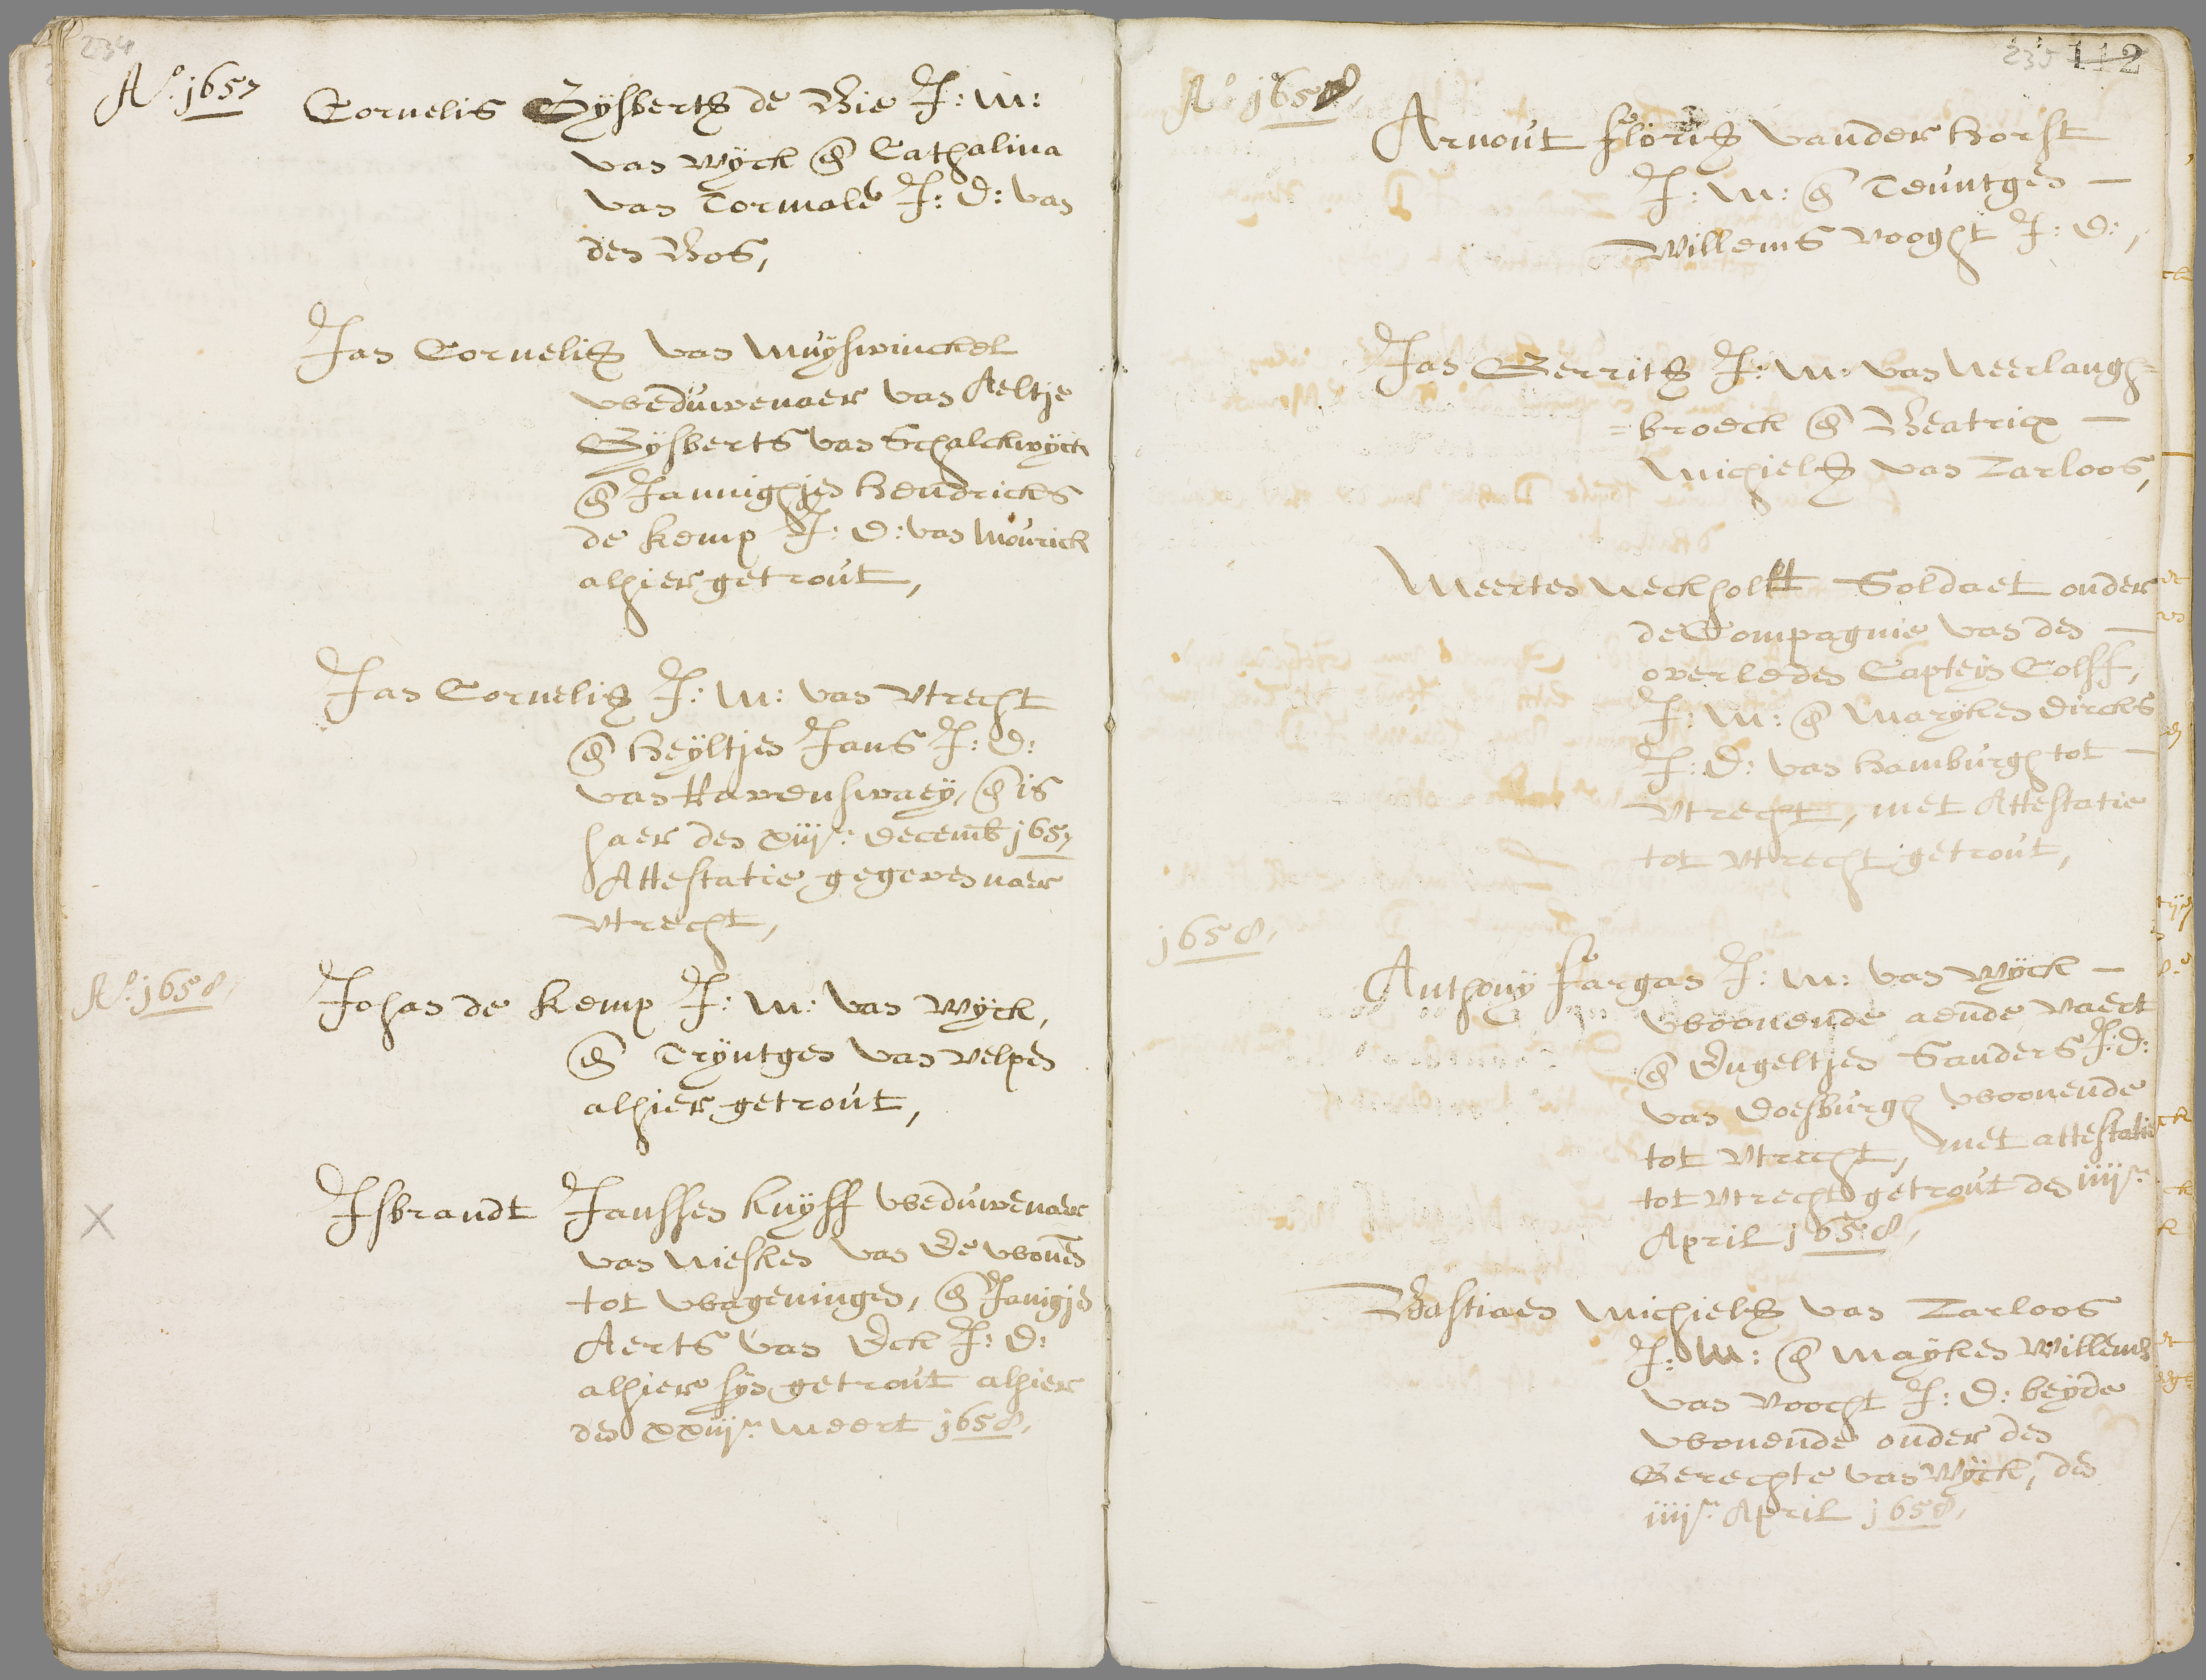 234
Ao. 1657
Cornelis Gijsberts de Bie J: M:
van Wijck en Cathalina
van Tormale J: D: van
den Bos,
Jan Cornelis van Muijswinckel
weduwenaer van Aeltje
Gijsberts van Schalckwijck
en Jannighjen Hendricks
de Kemp J: D: van Mourick
alhier getrout,
Jan Cornelis J: M: van Utrecht
en Heijltjen Jans J: D:
van Ravenswaeij, en is
haer den xiijen Decemb 1657
Attestatie gegeven naer
Utrecht,
Ao. 1658,
Johan de Kemp J: M: van Wijck,
en Trijntgen van Velpen
alhier getrout,
Isbrandt Janssen Kuijff weduwenaer
van Niesken van de wonen
tot Wageningen, en Janigjen
Aerts van Eck J: D:
alhier sijn getrout alhier
den xxiijen Meert 1658,
235 112
Ao 1658,
Arnout Floris vander Horst
J: M: en Teuntgen —
Willems Vooght J: D:,
Jan Gerrits J: M: van Neerlangh=
=broeck en Beatrix —
Michiels van Zarloos,
Meerten Neckholtt Soldaet onder
de Compagnie van den —
overleden Capteijn Colff,
J: M: en Marijken Dircks
J: D: van Hamburgh tot —
Utrecht, met Attestatie
tot Utrecht getrout,
1658,
Anthonij Fargan J: M: van Wijck —
woonende aende Vaert
en Engeltjen Sanders J: D:
van Doesburgh woonende
tot Utrecht, met attestatie
tot Utrecht getrout den iiijen
April 1658,
Bastiaen Michiels van Zarloos
J: M: en Maijken Willems
van Voocht J: D: beijde
wonende onder den
Gerechte van Wijck, den
iiijen April 1658,